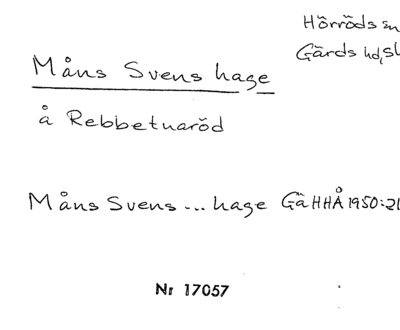 Hörröds sn
Gärds hd, Sk
Måns Svens hage
å Rebbetuaröd
Måns Svens ... hage GäHHÅ 1950:21
Nr 17057